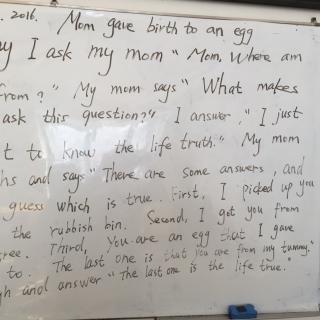 . 2016. Mom gave birth to an egg
y I ask my mom " Mom, Where am
from ? " My mom says " What makes
ask this question?" I answer, " I just
t to know the life truth." My mom
hs and says " There are some answers, and
guess which is true. First, I picked up you
the rubbish bin. Second, I got you from
ree. Third, You are an egg that I gave
to. The last one is that you are from my tummy."
gh and answer " The last one is the life true."